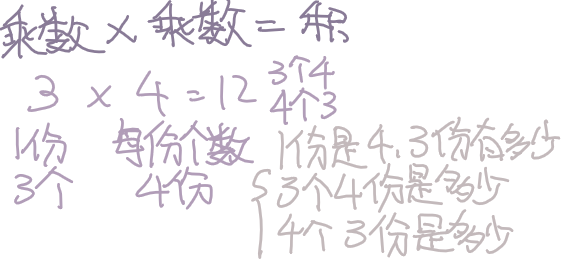 乘数×乘数=积
3×4=12 3个4
4个3
1份 每份个数 1份是4、3份有多少
3个 4份 3个4份是多少
4个3份是多少